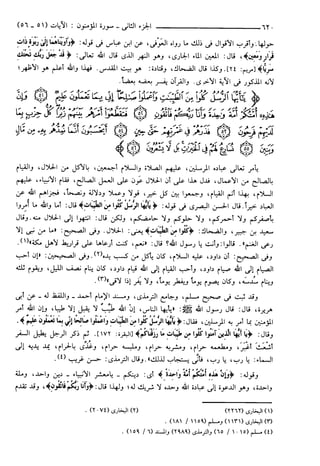 ٦٢٠ الجزء الثاني - سورة المؤمنون: الآيات (٥١ - ٥٦)
حولها. وأقرب الأقوال في ذلك ما رواه العوفي، عن ابن عباس في قوله: ﴿وَآوَيْنَاهُمَا إِلَىٰ رَبْوَةٍ ذَاتِ
قَرَارٍ وَمَعِينٍ﴾، قال: المعين الماء الجاري، وهو النهر الذي قال الله تعالى: ﴿قَدْ جَعَلَ رَبُّكِ تَحْتَكِ
سَرِيًّا﴾ [مريم: ٢٤]. وكذا قال الضحاك، وقتادة: هو بيت المقدس. فهذا والله أعلم هو الأظهر؛
لأنه المذكور في الآية الأخرى. والقرآن يفسر بعضه بعضاً.
﴿يَا أَيُّهَا الرُّسُلُ كُلُوا مِنَ الطَّيِّبَاتِ وَاعْمَلُوا صَالِحًا إِنِّي بِمَا تَعْمَلُونَ عَلِيمٌ وَإِنَّ
هَٰذِهِ أُمَّتُكُمْ أُمَّةً وَاحِدَةً وَأَنَا رَبُّكُمْ فَاتَّقُونِ فَتَقَطَّعُوا أَمْرَهُم بَيْنَهُمْ زُبُرًا كُلُّ حِزْبٍ بِمَا
لَدَيْهِمْ فَرِحُونَ فَذَرْهُمْ فِي غَمْرَتِهِمْ حَتَّىٰ حِينٍ أَيَحْسَبُونَ أَنَّمَا نُمِدُّهُم بِهِ مِن مَّالٍ
وَبَنِينَ نُسَارِعُ لَهُمْ فِي الْخَيْرَاتِ بَل لَّا يَشْعُرُونَ﴾
يأمر تعالى عباده المرسلين، عليهم الصلاة والسلام أجمعين، بالأكل من الحلال، والقيام
بالصالح من الأعمال، فدل هذا على أن الحلال عون على العمل الصالح، فقام الأنبياء، عليهم
السلام، بهذا أتم القيام، وجمعوا بين كل خير، قولاً وعملاً ودلالة ونصحاً، فجزاهم الله عن
العباد خيراً. قال الحسن البصري في قوله: ﴿يَا أَيُّهَا الرُّسُلُ كُلُوا مِنَ الطَّيِّبَاتِ﴾ قال: أما والله ما أمروا
بأصفركم ولا أحمركم، ولا حلوكم ولا حامضكم، ولكن قال: انتهوا إلى الحلال منه. وقال
سعيد بن جبير، والضحاك: ﴿كُلُوا مِنَ الطَّيِّبَاتِ﴾ يعني: الحلال. وفي الصحيح: «ما من نبي إلا
رعى الغنم». قالوا: وأنت يا رسول الله؟ قال: «نعم، كنت أرعاها على قراريط لأهل مكة»(١).
وفي الصحيح: أن داود، عليه السلام، كان يأكل من كسب يده(٢). وفي الصحيحين: «إن أحب
الصيام إلى الله صيام داود، وأحب القيام إلى الله قيام داود، كان ينام نصف الليل، ويقوم ثلثه
وينام سدسه، وكان يصوم يوماً ويفطر يوماً، ولا يفر إذا لاقى»(٣).
وقد ثبت في صحيح مسلم، وجامع الترمذي، ومسند الإمام أحمد - واللفظ له - عن أبي
هريرة، قال: قال رسول الله ﷺ: «يأيها الناس، إن الله طيب لا يقبل إلا طيبا، وإن الله أمر
المؤمنين بما أمر به المرسلين، فقال: ﴿يَا أَيُّهَا الرُّسُلُ كُلُوا مِنَ الطَّيِّبَاتِ وَاعْمَلُوا صَالِحًا إِنِّي بِمَا تَعْمَلُونَ عَلِيمٌ﴾.
وقال: ﴿يَا أَيُّهَا الَّذِينَ آمَنُوا كُلُوا مِن طَيِّبَاتِ مَا رَزَقْنَاكُمْ﴾ [البقرة: ١٧٢]. ثم ذكر الرجل يطيل السفر
أشعث أغبر، ومطعمه حرام، ومشربه حرام، وملبسه حرام، وغذي بالحرام، يمد يديه إلى
السماء: يا رب، يا رب، فأنى يستجاب لذلك». وقال الترمذي: حسن غريب (٤).
وقوله: ﴿وَإِنَّ هَٰذِهِ أُمَّتُكُمْ أُمَّةً وَاحِدَةً﴾ أي: دينكم - يامعشر الأنبياء - دين واحد، وملة
واحدة، وهو الدعوة إلى عبادة الله وحده لا شريك له، ولهذا قال: ﴿وَأَنَا رَبُّكُمْ فَاتَّقُونِ﴾، وقد تقدم
(١) البخاري (٢٢٦٢) (٢) البخاري (٢٠٧٤).
(٣) البخاري (١١٣١) ومسلم (١١٥٩ / ١٨١).
(٤) مسلم (١٠١٥ / ٦٥) والترمذي (٢٩٨٩) والمسند (٦ / ١٥٩).